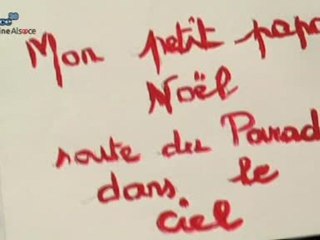 ine Alsace
Mon petit papa
Noël
route du Parad
dans le
ciel